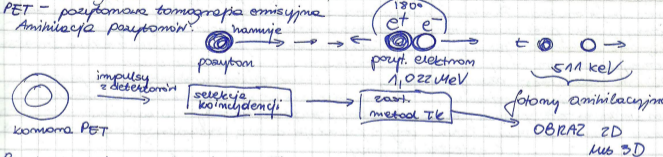 PET - pozytonowa tomografia emisyjna
Anihilacja pozytonów:
hamuje
180°
e+ e-
pozyton
pozyt. elektron
1,022 MeV
511 keV
fotony anihilacyjne
impulsy
z detektorów
selekcja
koincydencji
zast.
metod TK
komora PET
OBRAZ 2D
lub 3D